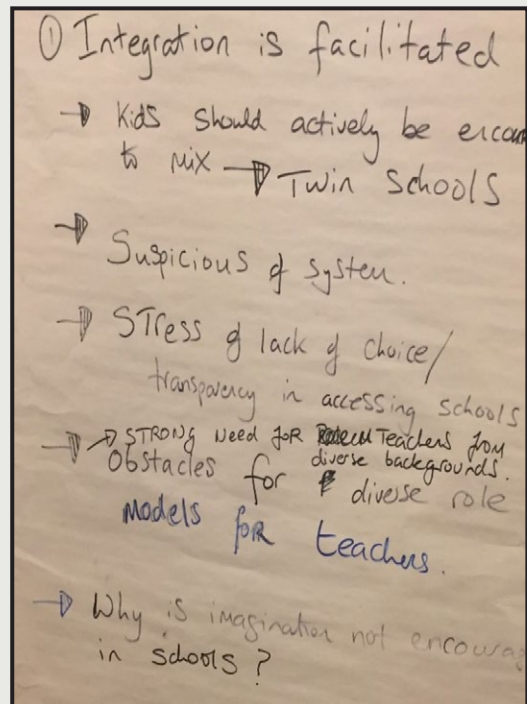 ① Integration is facilitated
→ Kids should actively be encou
to mix → Twin Schools
→ Suspicious of system.
→ Stress of lack of choice/
transparency in accessing schools
→ → STRONG Need FOR Teachers from
diverse backgrounds.
Obstacles for diverse role
Models FOR teachers.
→ Why is imagination not encourag
in schools?